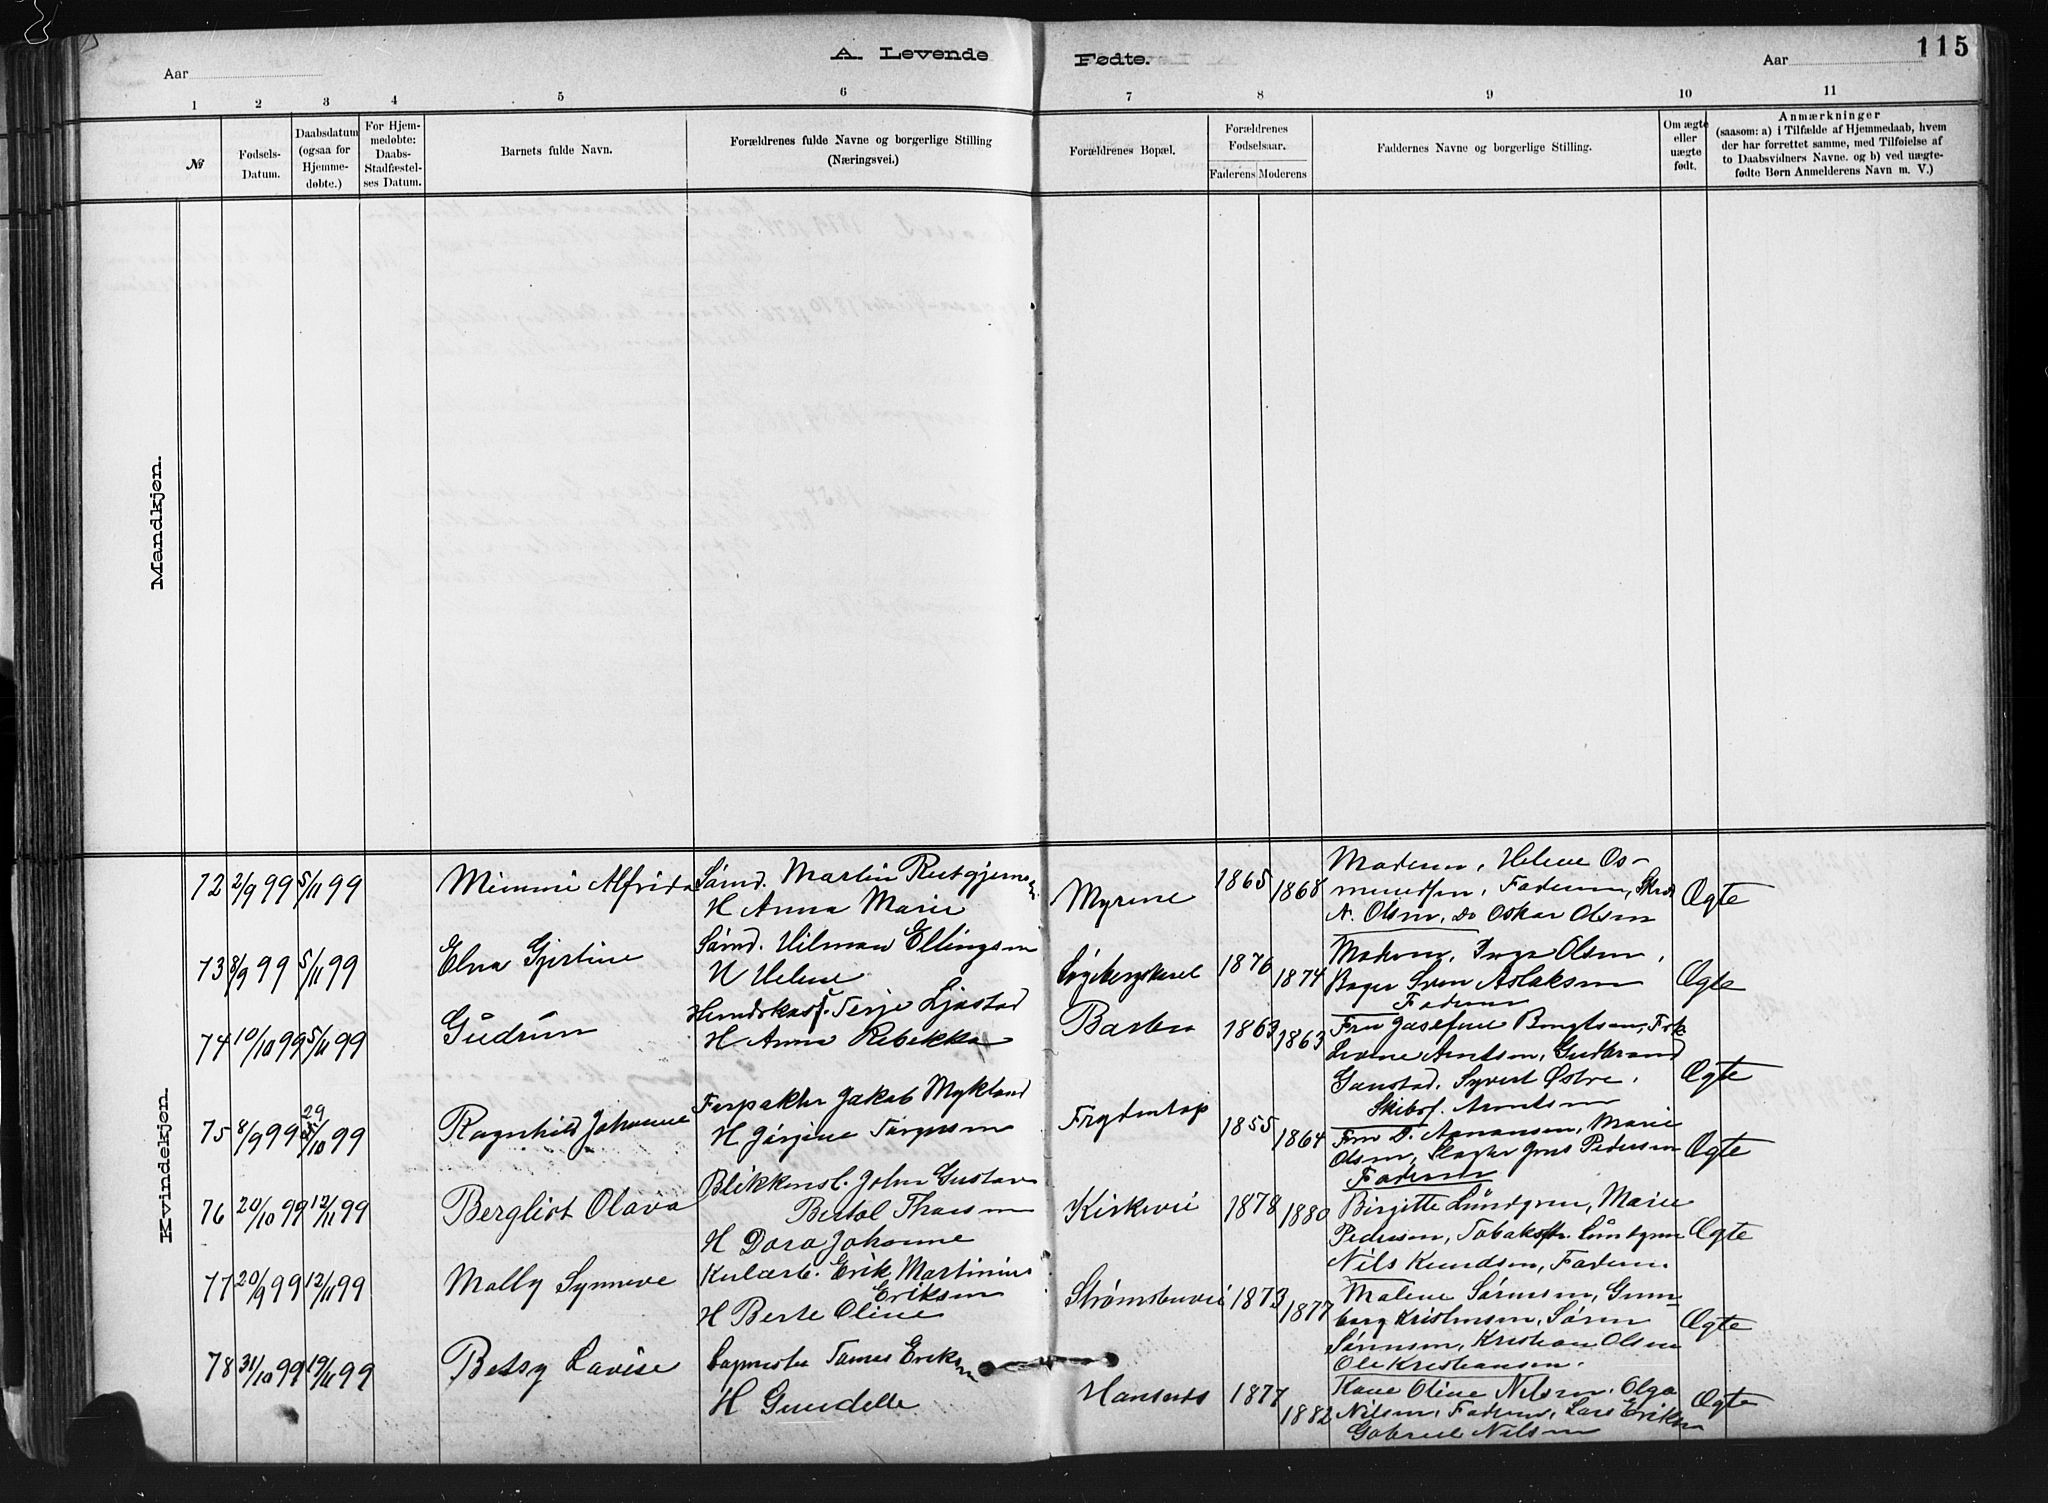 A. Levende Fødte.
115
Aar Aar
1 2 3 4 5 6 7 8 9 10 11
№
Fødsels-
Datum.
Daabsdatum
(ogsaa for
Hjemme-
døbte.)
For Hjem-
medøbte:
Daabs-
Stadfæstel-
ses Datum.
Barnets fulde Navn.
Forældrenes fulde Navne og borgerlige Stilling
(Næringsvei.)
Forældrenes Bopæl.
Forældrenes
Fødselsaar.
Faderens Moderens
Faddernes Navne og borgerlige Stilling.
Om ægte
eller
uægte
født.
Anmærkninger
(saasom: a) i Tilfælde af Hjemmedaab, hvem
der har forrettet samme, med Tilføielse af
to Daabsvidners Navne. og b) ved uægte-
fødte Børn Anmelderens Navn m. V.)
Mandkjøn.
Kvindekjøn.
72 2/9 99 5/11 99 Mimmi Alfrida
Sømd. Martin
H Anna Marie
Myrene 1865 1868
Moderen, Helene Os-
mundsen, Faderen,
N. Olsen, Do Oskar Olsen
Ægte
73 8/9 99 5/11 99 Elna Gjertine
Sømd. Hilman Ellingsen
H Helene
1876 1874
Moderen, Inga Olsen,
Bager Sven Aslaksen
Faderen
Ægte
74 10/10 99 5/11 99 Gudrun
Terje Ljøstad
H Anna Rebekka
Barbu 1863 1863
Fru Josefine Bengtsen, Frk
Levine Arntsen, Gudbrand
Syvert Østre.
Arntsen
Ægte
75 8/9 99 29/10 99 Ragnhild Johanne
Jakob Mykland
H Jørgine Torgersen
1855 1864
Fru D. Aanonsen, Marie
Olsen, Jens Pedersen
Faderen
Ægte
76 20/10 99 12/11 99 Bergliot Olava
Blikkensl. John Gustav
Bertol Thorsen
H Dora Johanne
Kirkevei 1878 1880
Birgitte Lundgren, Marie
Pedersen, Lundgren
Nils Knudsen, Faderen.
Ægte
77 20/9 99 12/11 99 Mally Synneve
Kularb. Erik Martinius
Eriksen
H Berte Oline
Strømsbuvei 1873 1877
Malene Sørensen, Gun-
borg Kristensen, Søren
Sørensen, Kristian Olsen
Ole Kristiansen.
Ægte
78 31/10 99 19/11 99 Betsy Lovise
Tomas Eriksen
H Gundelle
1877 1882
Kaue Oline Nilsen, Olga
Nilsen, Faderen, Lars Eriksen
Gabriel Nilsen
Ægte